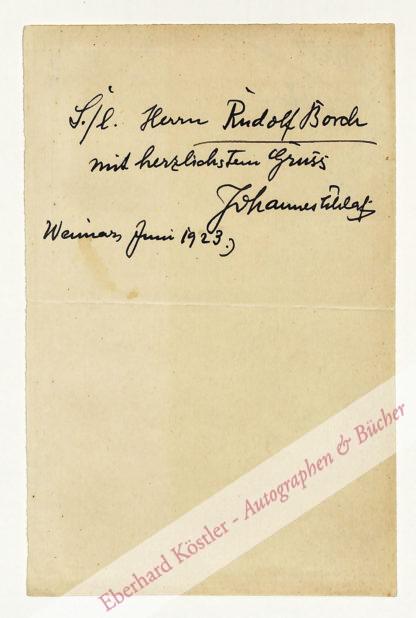 S./l. Herrn Rudolf Borch
mit herzlichstem Gruss
Johannes Schlaf
Weimar, Juni 1923.)
Eberhard Köstler - Autographen & Bücher